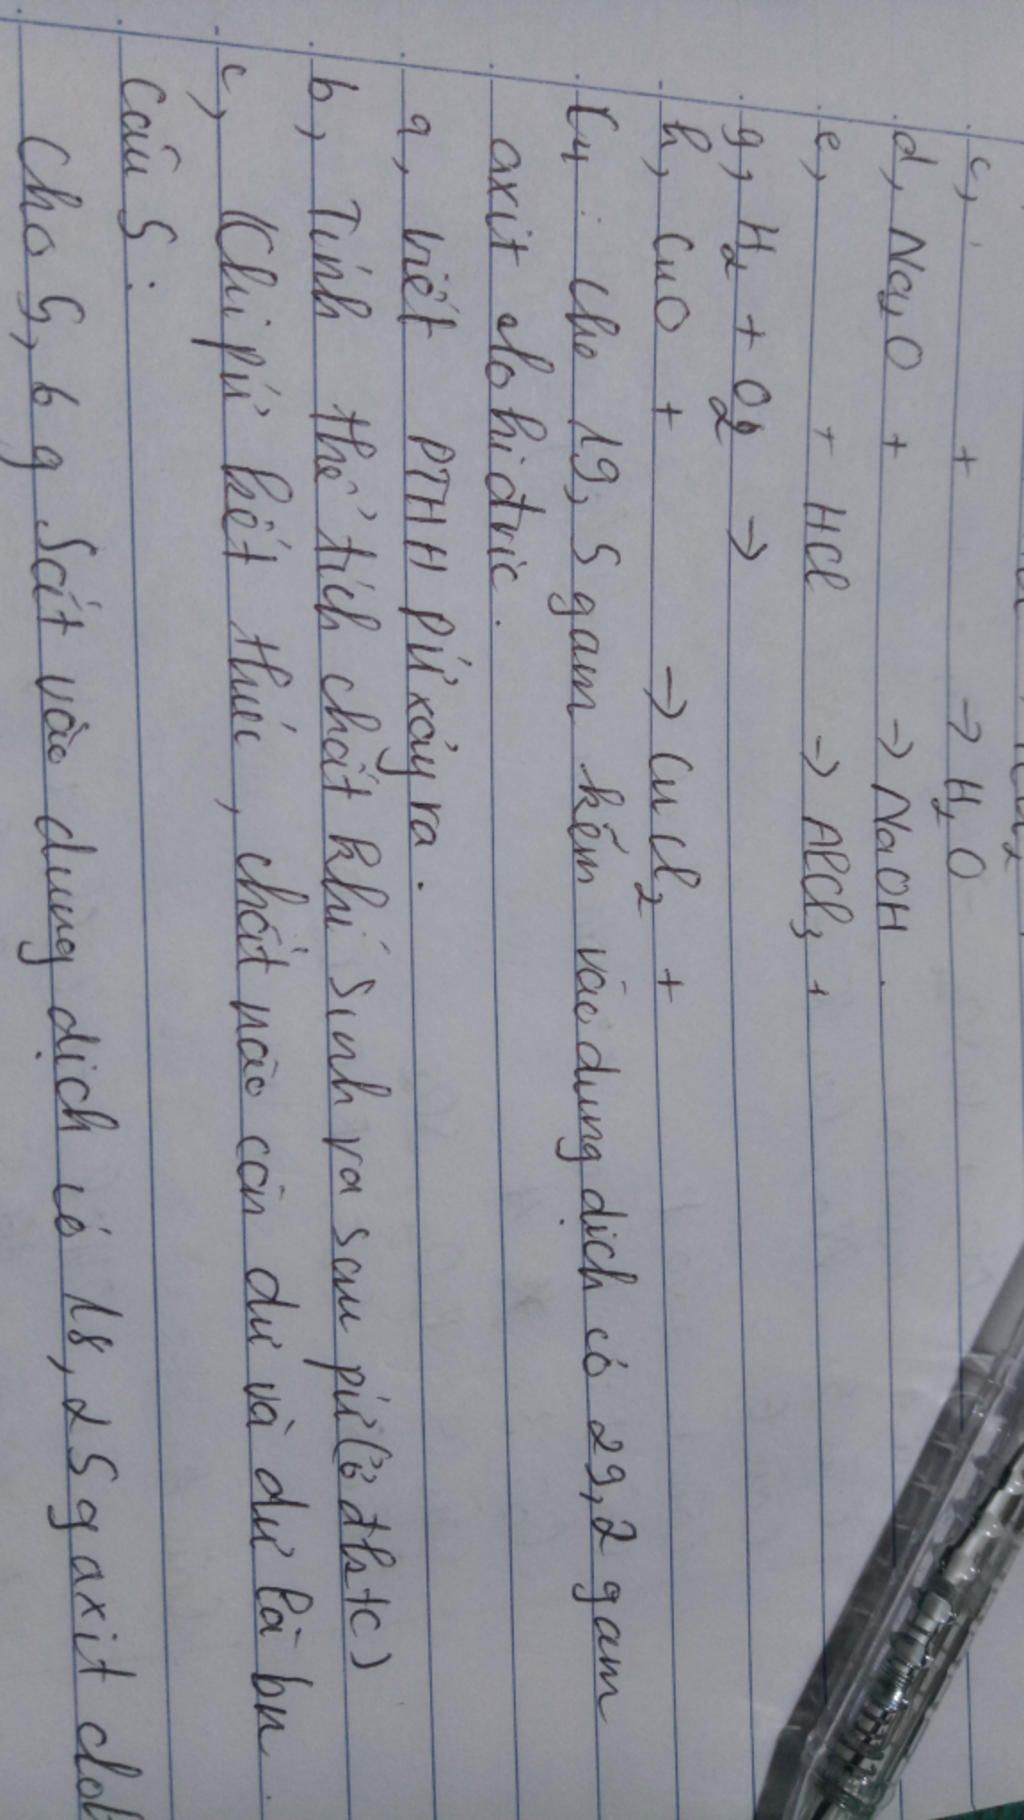 c, + → H₂O
d, Na₂O + → NaOH.
e, + HCl → AlCl₃ +
g, H₂ + O₂ →
h, CuO + → CuCl₂ +
C4: cho 19,5 gam kẽm vào dung dịch có 29,2 gam
axit clohiđric.
a, viết PTHH pứ xảy ra.
b, Tính thể tích chất khí sinh ra sau pứ (ở đktc)
c, Khi pứ kết thúc, chất nào còn dư và dư là bn.
Câu 5:
Cho 5,6 g sắt vào dung dịch có 18,25 g axit clo